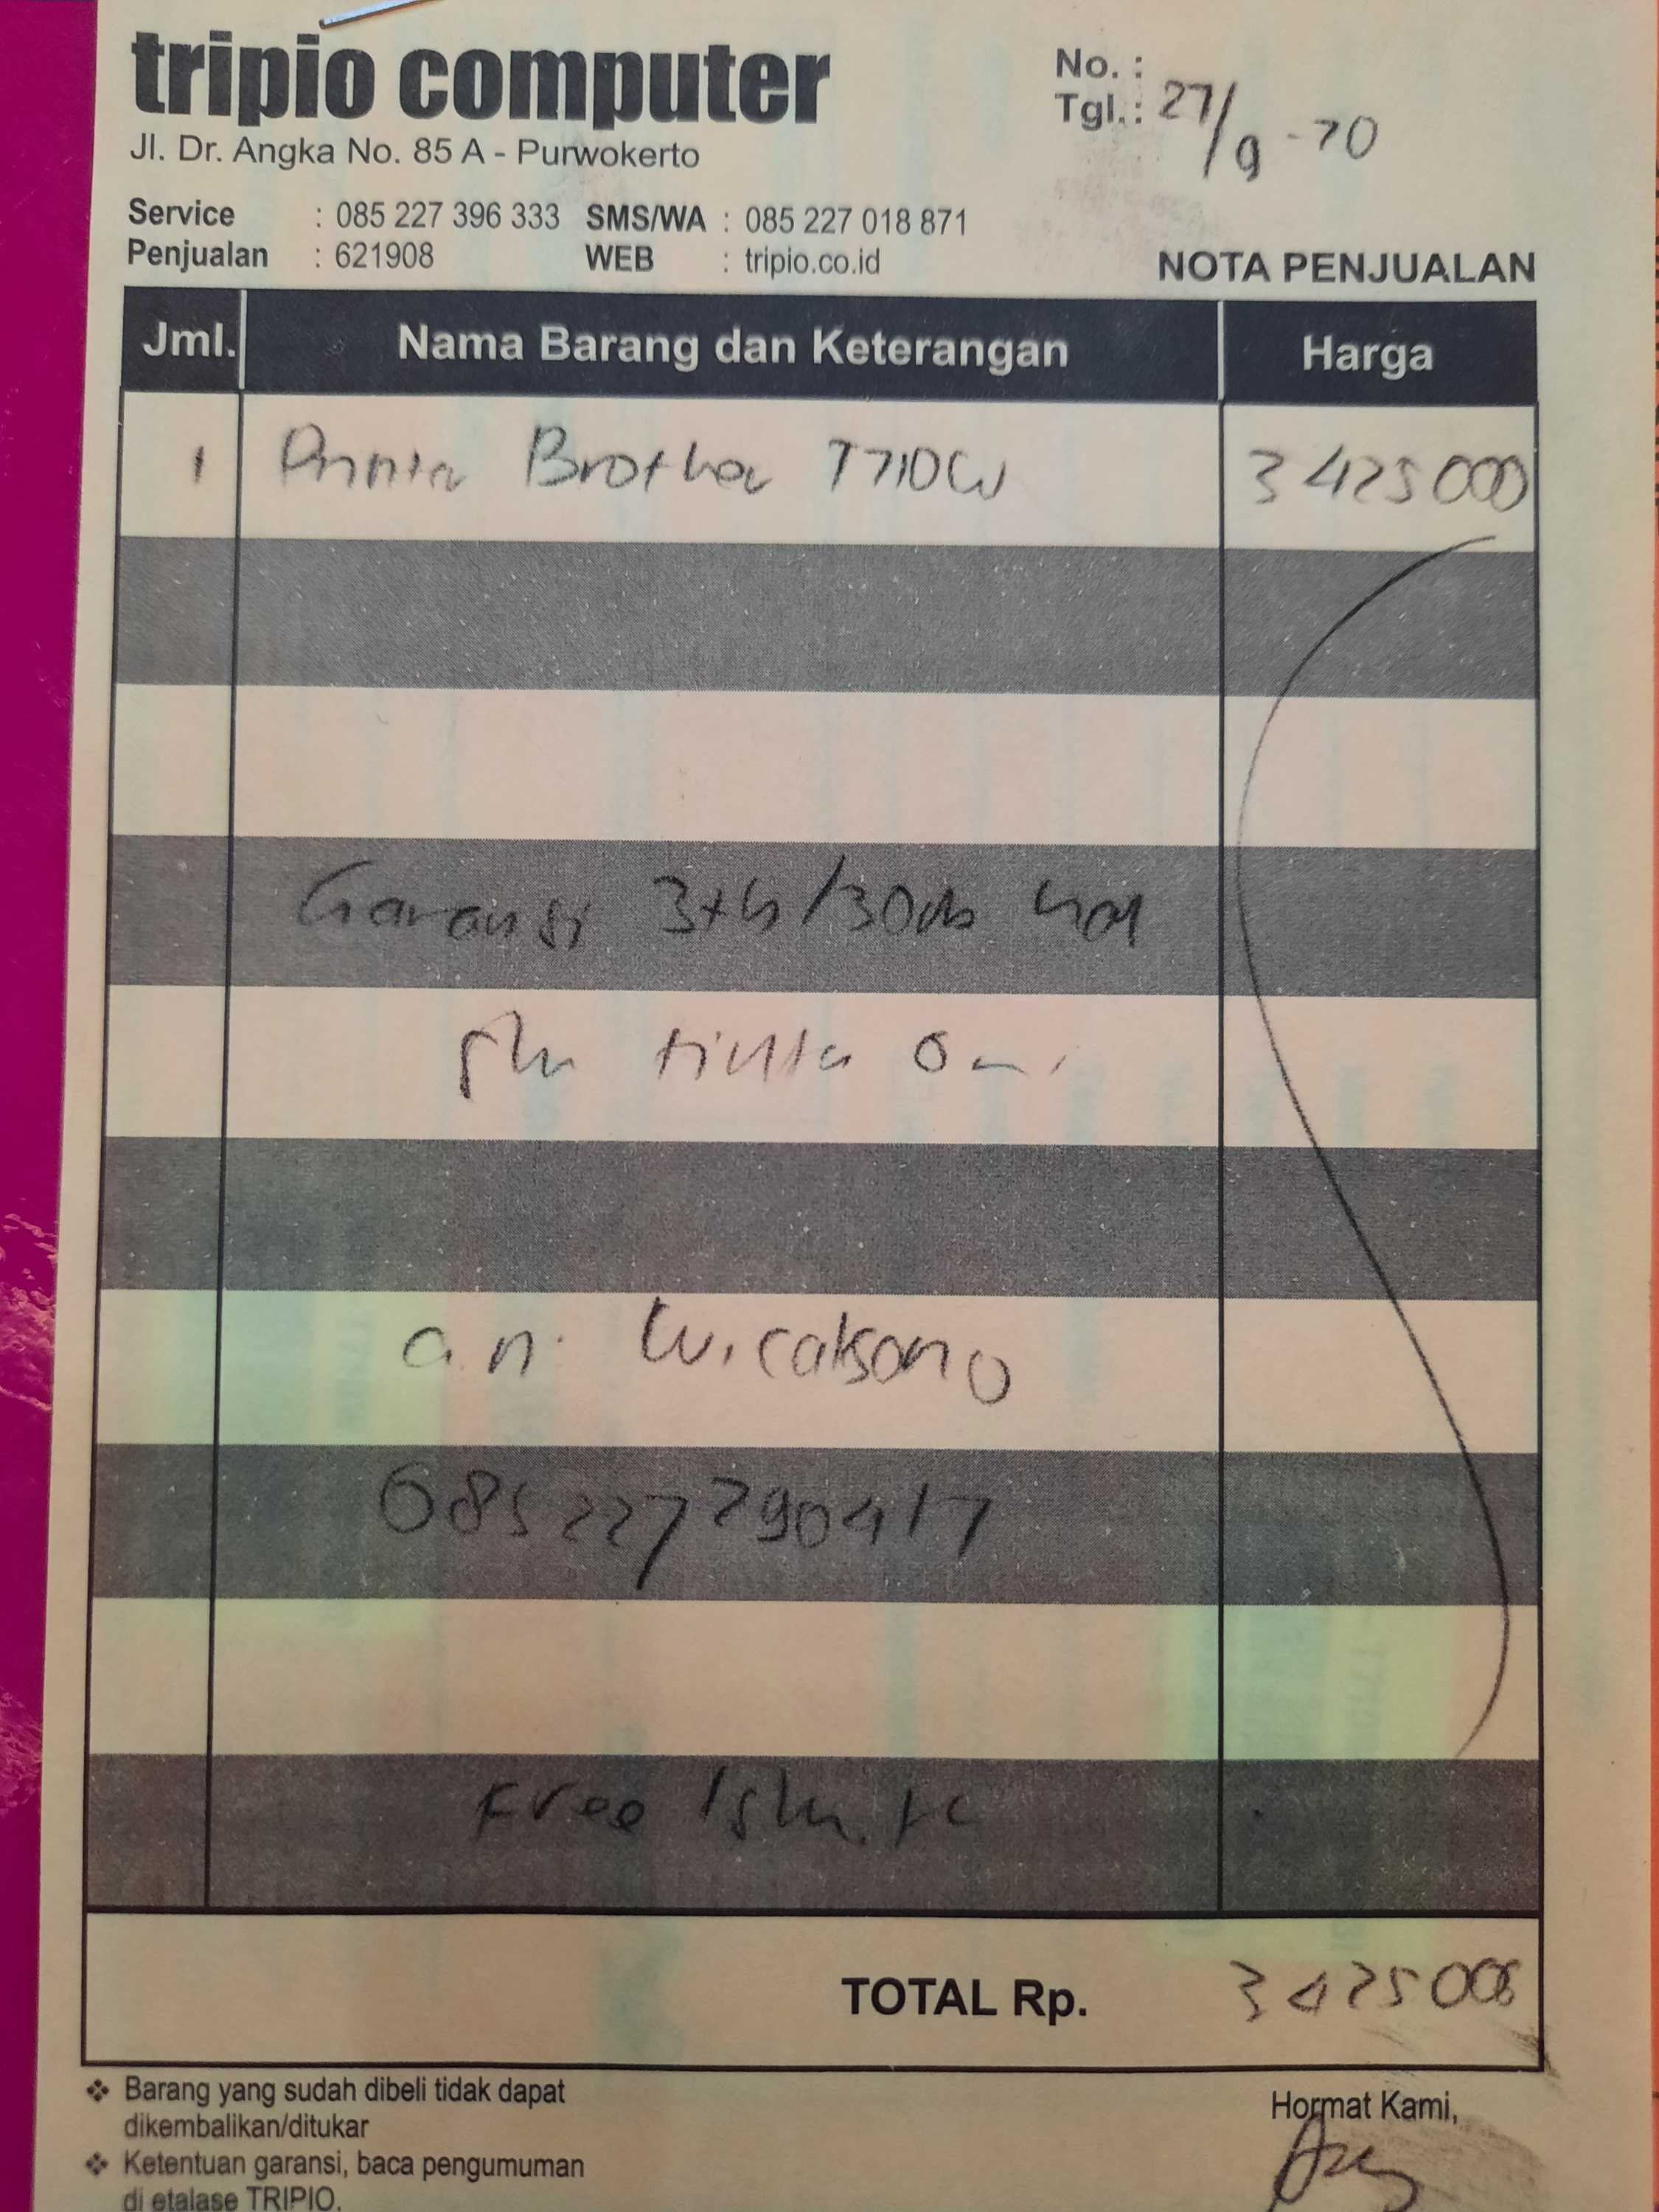 tripio computer
Jl. Dr. Angka No. 85 A - Purwokerto
No. :
Tgl. : 27/9 - 20
Service : 085 227 396 333 SMS/WA : 085 227 018 871
Penjualan : 621908 WEB : tripio.co.id
NOTA PENJUALAN
Jml. Nama Barang dan Keterangan Harga
1 Printer Brother T710W 3425000
Garansi 3th/30rb
tinta
a.n. Wicaksono
085227790417
Free
TOTAL Rp. 3425000
❖ Barang yang sudah dibeli tidak dapat
dikembalikan/ditukar
❖ Ketentuan garansi, baca pengumuman
di etalase TRIPIO.
Hormat Kami,